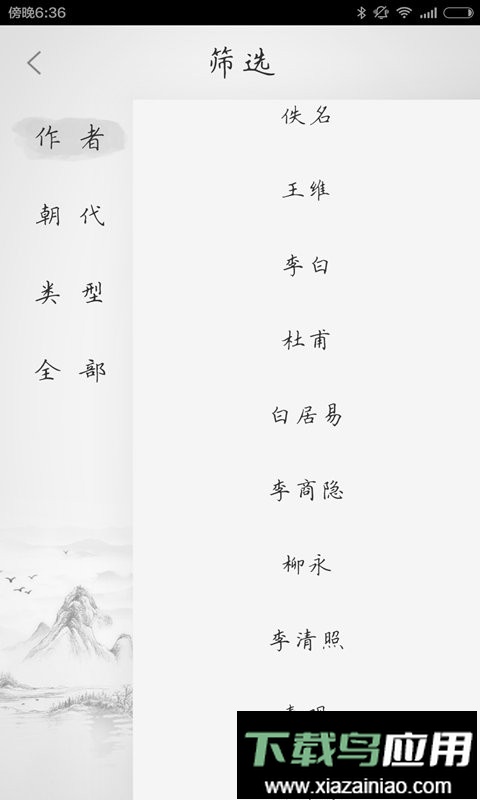 傍晚6:36
筛选
作者
朝代
类型
全部
佚名
王维
李白
杜甫
白居易
李商隐
柳永
李清照
下载鸟应用
www.xiazainiao.com